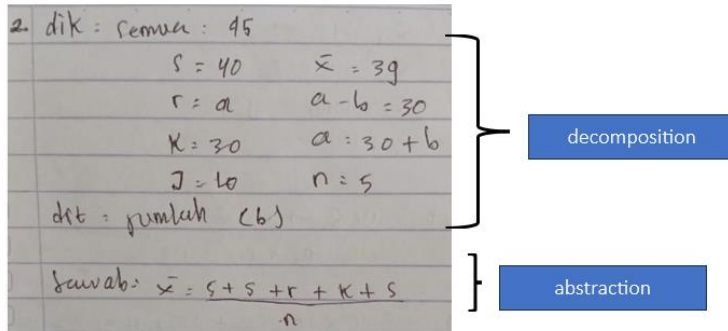 2. dik : semua : 45
S = 40 x̄ = 39
r = a a - b = 30
K = 30 a = 30 + b
J = b n = 5
dit = jumlah (b)
Jawab: x̄ = s + s + r + k + s
n
decomposition
abstraction